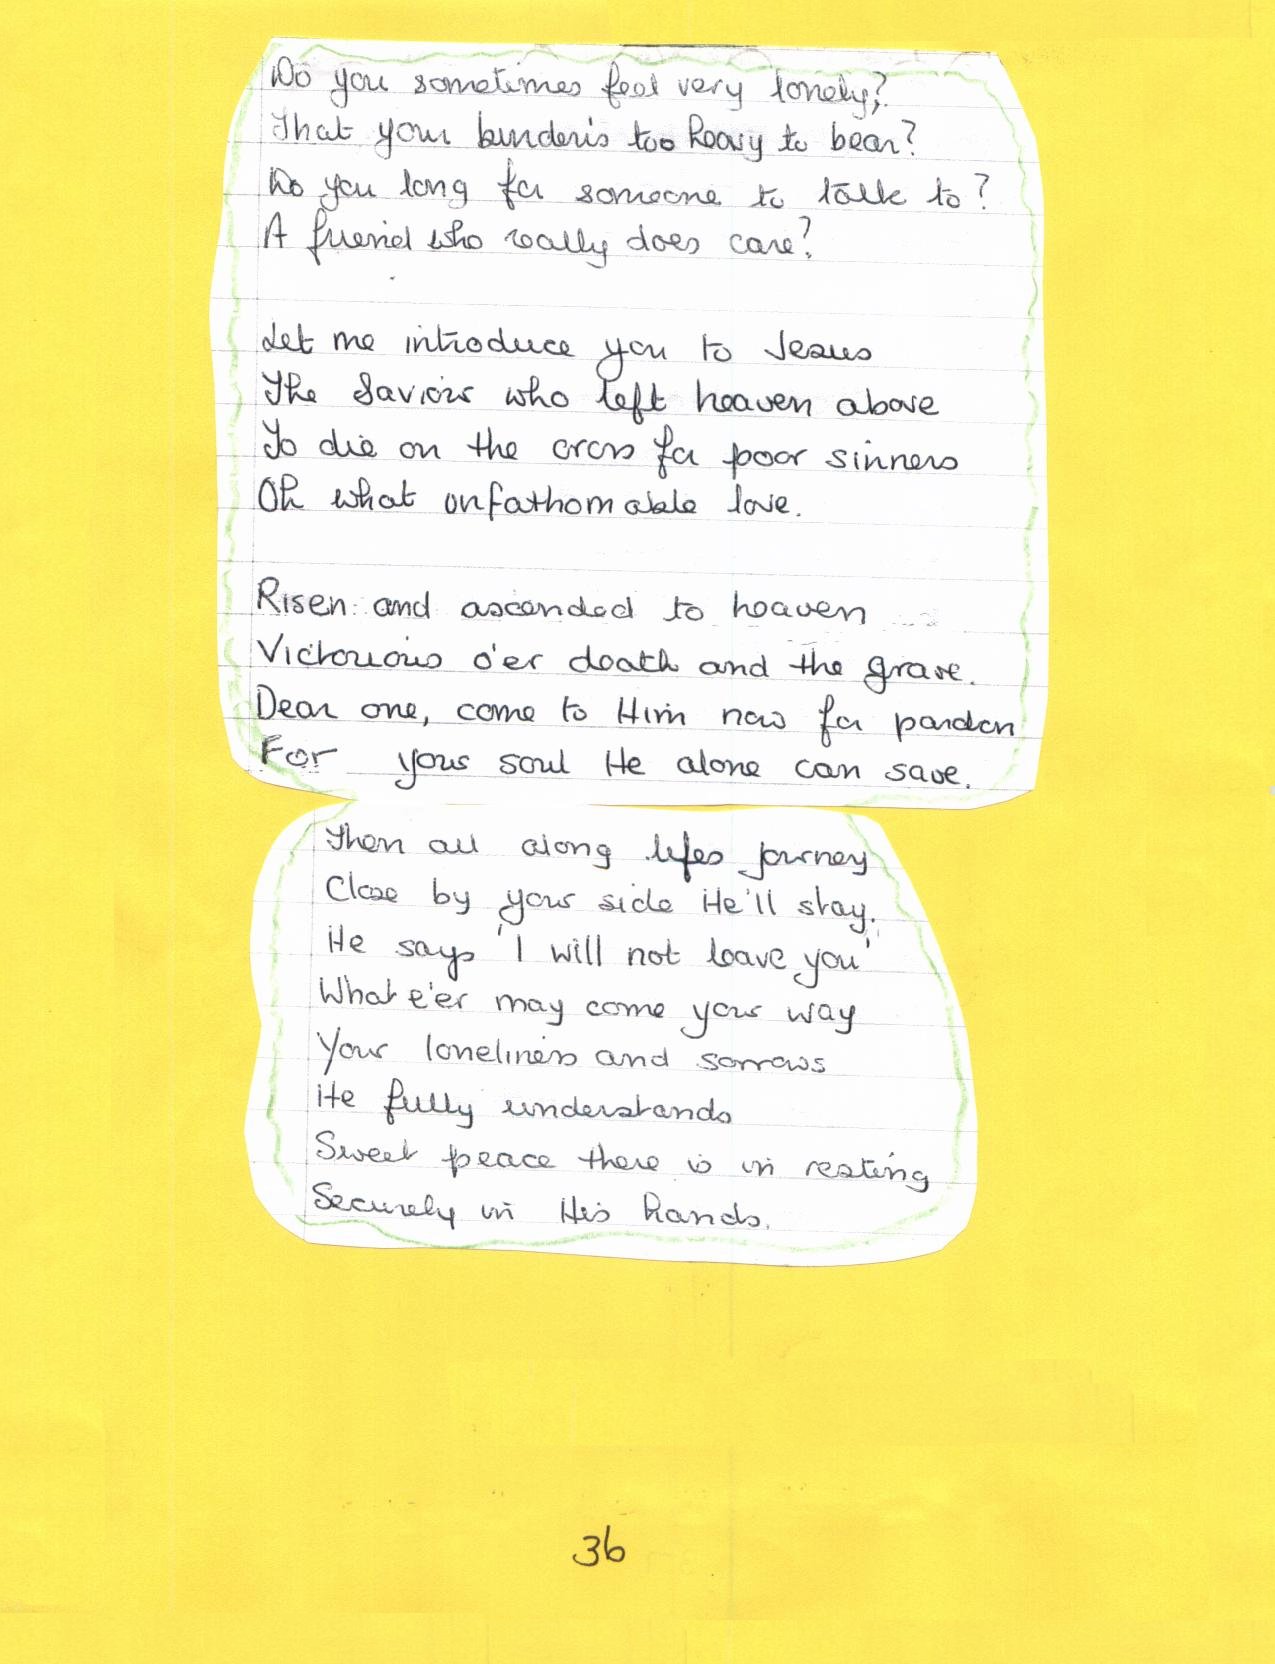 Do you sometimes feel very lonely?
That your burden's too heavy to bear?
Do you long for someone to talk to?
A friend who really does care?
Let me introduce you to Jesus
The Saviour who left heaven above
To die on the cross for poor sinners
Oh what unfathomable love.
Risen and ascended to heaven
Victorious o'er death and the grave.
Dear one, come to Him now for pardon
For your soul He alone can save.
Then all along lifes journey
Close by your side He'll stay.
He says 'I will not leave you'
What e'er may come your way
Your loneliness and sorrows
He fully understands
Sweet peace there is in resting
Securely in His hands.
36